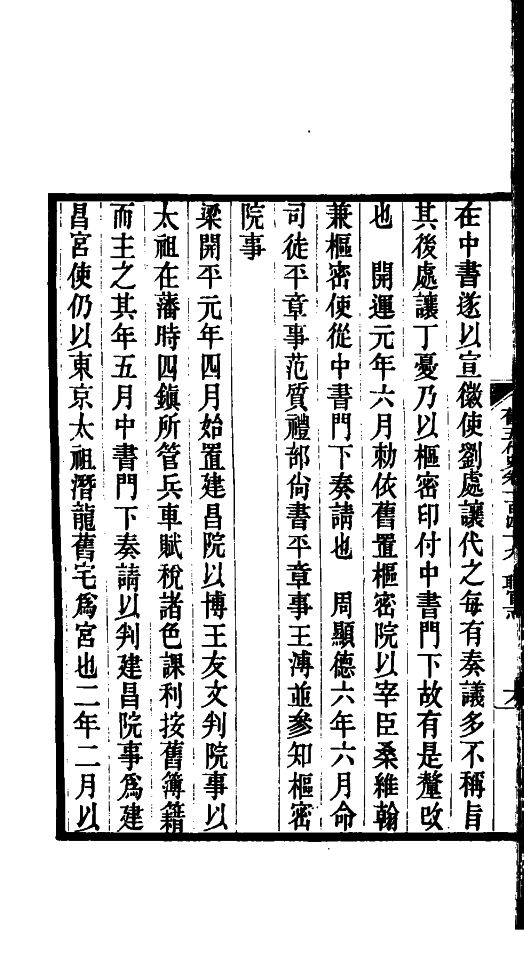 在中書遂以宣徽使劉處讓代之每有奏議多不稱旨
其後處讓丁憂乃以樞密印付中書門下故有是釐改
也　開運元年六月勅依舊置樞密院以宰臣桑維翰
兼樞密使從中書門下奏請也　周顯德六年六月命
司徒平章事范質禮部尙書平章事王溥並參知樞密
院事
梁開平元年四月始置建昌院以博王友文判院事以
太祖在藩時四鎭所管兵車賦稅諸色課利按舊簿籍
而主之其年五月中書門下奏請以判建昌院事爲建
昌宮使仍以東京太祖潛龍舊宅爲宮也二年二月以